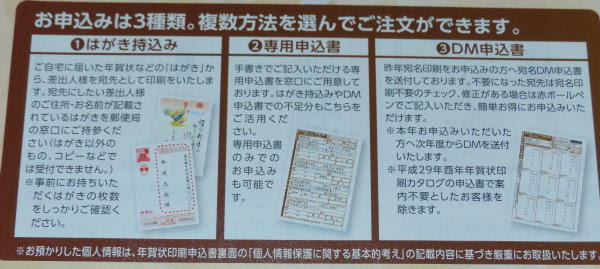 お申込みは3種類。複数方法を選んでご注文ができます。
❶はがき持込み
ご自宅に届いた年賀状などの「はがき」か
ら、差出人様を宛先として印刷をいたしま
す。宛先にしたい差出人様
のご住所・お名前が記載さ
れているはがきを郵便局
の窓口にご持参くだ
さい(はがき以外の
もの、コピーなどで
は受付できません。)
※事前にお持ちいた
だくはがきの枚数
をしっかりご確認く
ださい。
❷専用申込書
手書きでご記入いただける専
用申込書を窓口にご用意して
おります。はがき持込みやDM
申込書での不足分もこちらを
ご活用くだ
さい。
専用申込書
のみでの
お申込み
も可能で
す。
❸DM申込書
昨年宛名印刷をお申込みの方へ宛名DM申込書
を送付しております。不要になった宛先は宛名印
刷不要のチェック、修正がある場合は赤ボールペ
ンでご記入いただき、簡単お得にお申込みいただ
けます。
※本年お申込みいただいた
方へ次年度からDMを送付
いたします。
※平成29年酉年年賀状印
刷カタログの申込書で案
内不要としたお客様を
除きます。
※お預かりした個人情報は、年賀状印刷申込書裏面の「個人情報保護に関する基本的考え」の記載内容に基づき厳重にお取扱いたします。